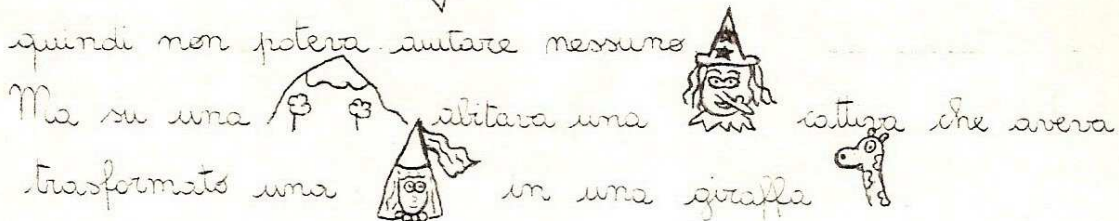 quindi non poteva aiutare nessuno
Ma su una abitava una cattiva che aveva
trasformato una in una giraffa